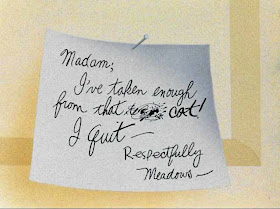 Madam;
I've taken enough
from that cat!
I quit—
Respectfully
Meadows—